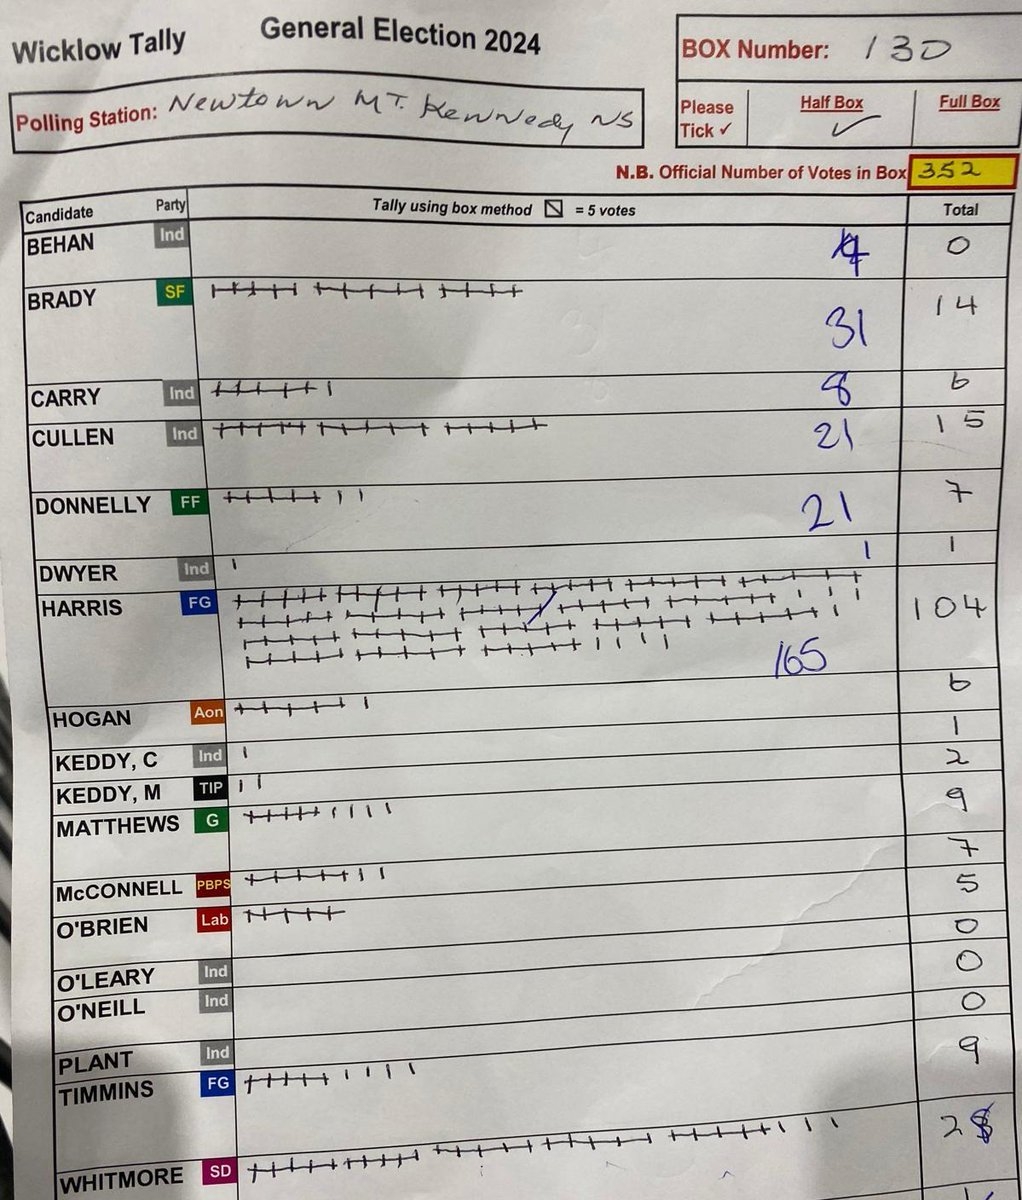 Wicklow Tally General Election 2024
BOX Number: 130
Polling Station: Newtown MT. Kennedy NS
Please Tick ✓ Half Box ✓ Full Box
N.B. Official Number of Votes in Box 352
Candidate Party Tally using box method = 5 votes Total
BEHAN Ind 4 0
BRADY SF 31 14
CARRY Ind 8 6
CULLEN Ind 21 15
DONNELLY FF 21 7
DWYER Ind 1 1
HARRIS FG 165 104
HOGAN Aon 6
KEDDY, C Ind 1
KEDDY, M TIP 2
MATTHEWS G 9
McCONNELL PBPS 7
O'BRIEN Lab 5
O'LEARY Ind 0
O'NEILL Ind 0
PLANT Ind 0
TIMMINS FG 9
WHITMORE SD 28